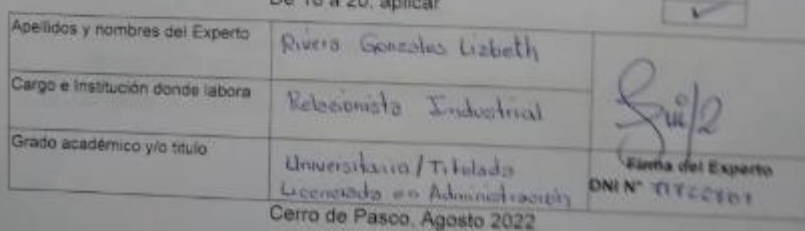 De 16 a 20: aplicar
Apellidos y nombres del Experto
Rivera Gonzales Lizbeth
Cargo e Institución donde labora
Relacionista Industrial
Grado académico y/o título
Universitaria / Titulada
Licenciada en Administración
Firma del Experto
DNI N°
Cerro de Pasco, Agosto 2022